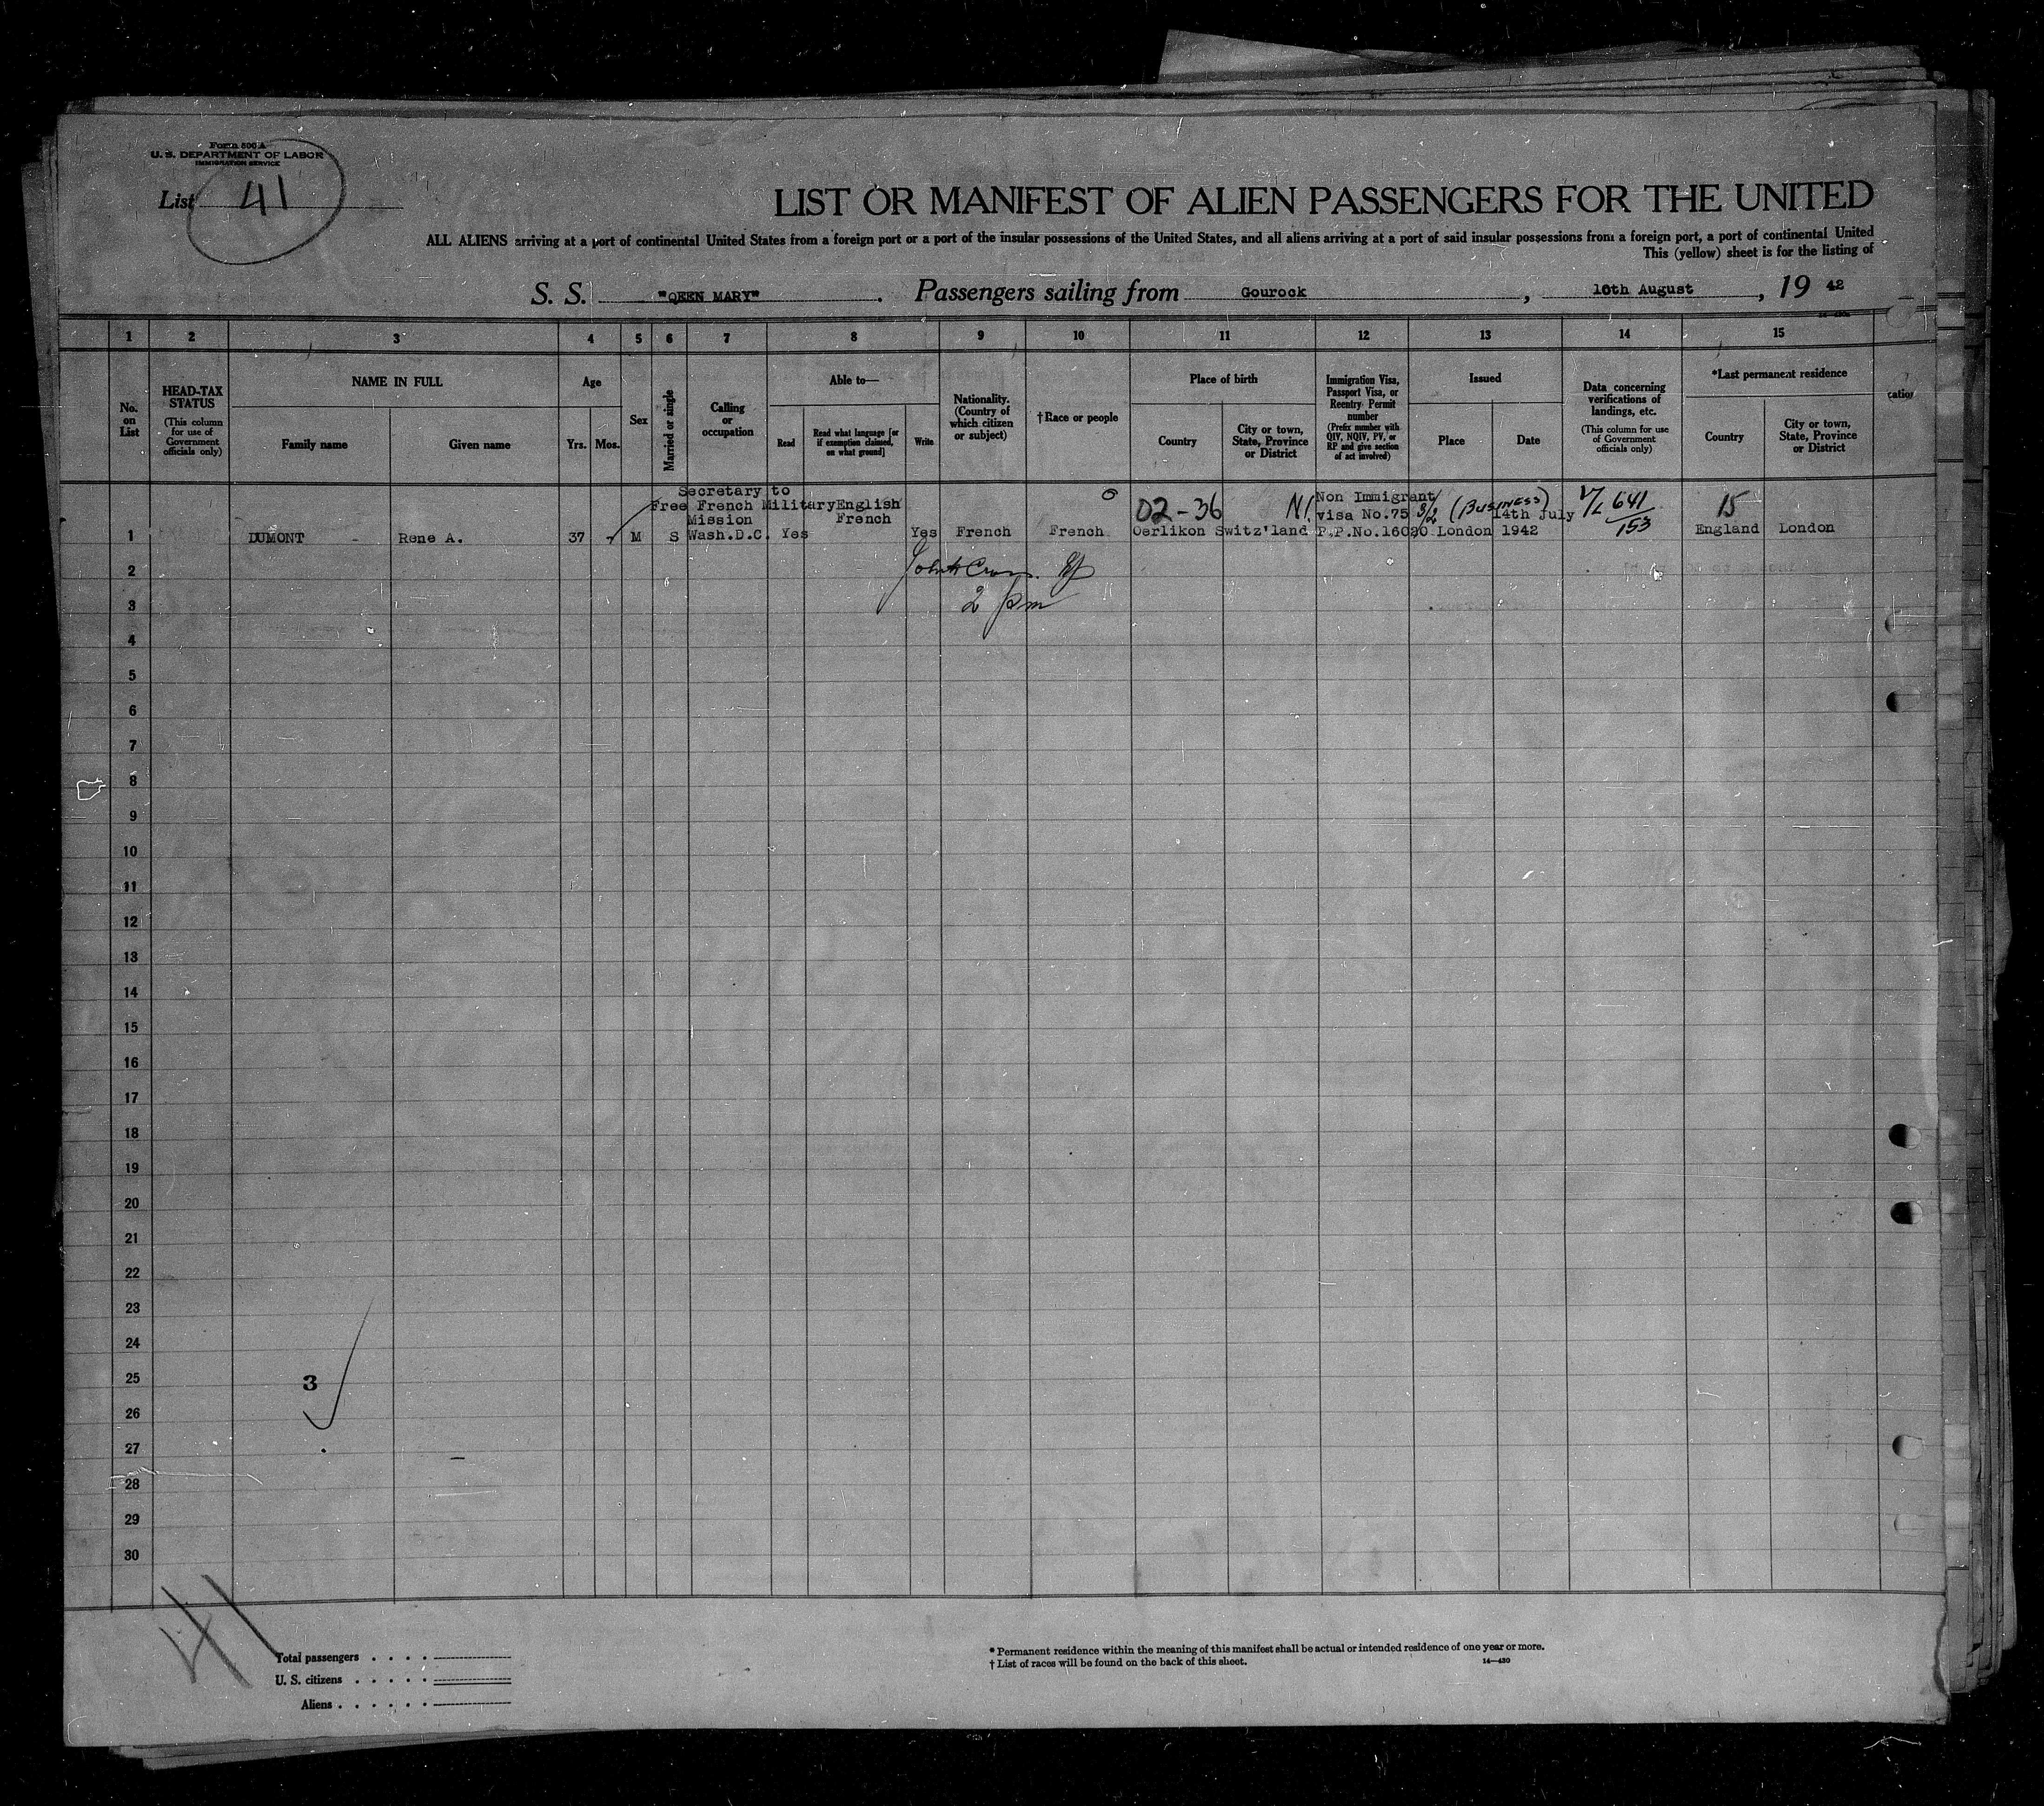 Form 500 A
U. S. DEPARTMENT OF LABOR
IMMIGRATION SERVICE
List 41
LIST OR MANIFEST OF ALIEN PASSENGERS FOR THE UNITED
ALL ALIENS arriving at a port of continental United States from a foreign port or a port of the insular possessions of the United States, and all aliens arriving at a port of said insular possessions from a foreign port, a port of continental United
This (yellow) sheet is for the listing of
S. S. "QEEN MARY". Passengers sailing from Gourock, 10th August, 19 42
1 2 3 4 5 6 7 8 9 10 11 12 13 14 15
No. on List
HEAD-TAX STATUS
(This column for use of Government officials only)
NAME IN FULL
Family name
Given name
Age
Yrs. Mos.
Sex
Married or single
Calling or occupation
Able to—
Read
Read what language [or if exemption claimed, on what ground]
Write
Nationality. (Country of which citizen or subject)
†Race or people
Place of birth
Country
City or town, State, Province or District
Immigration Visa, Passport Visa, or Reentry Permit number
(Prefix number with QIV, NQIV, PV, or RP and give section of act involved)
Issued
Place
Date
Data concerning verifications of landings, etc.
(This column for use of Government officials only)
*Last permanent residence
Country
City or town, State, Province or District
Secretary to
Free French Military English
Mission French
02-36 Non Immigrant
visa No.75 3/2 (Business) 14th July
641
153
15
1 DUMONT - Rene A. 37 M S Wash.D.C. Yes Yes French French Oerlikon Switz'land P.P.No.16020 London 1942 England London
2
2 pm
3
4
5
6
7
8
9
10
11
12
13
14
15
16
17
18
19
20
21
22
23
24
25
3
26
27
28
29
30
41
Total passengers . . . .
U. S. citizens . . . . .
Aliens . . . . . .
* Permanent residence within the meaning of this manifest shall be actual or intended residence of one year or more.
† List of races will be found on the back of this sheet.
14—430